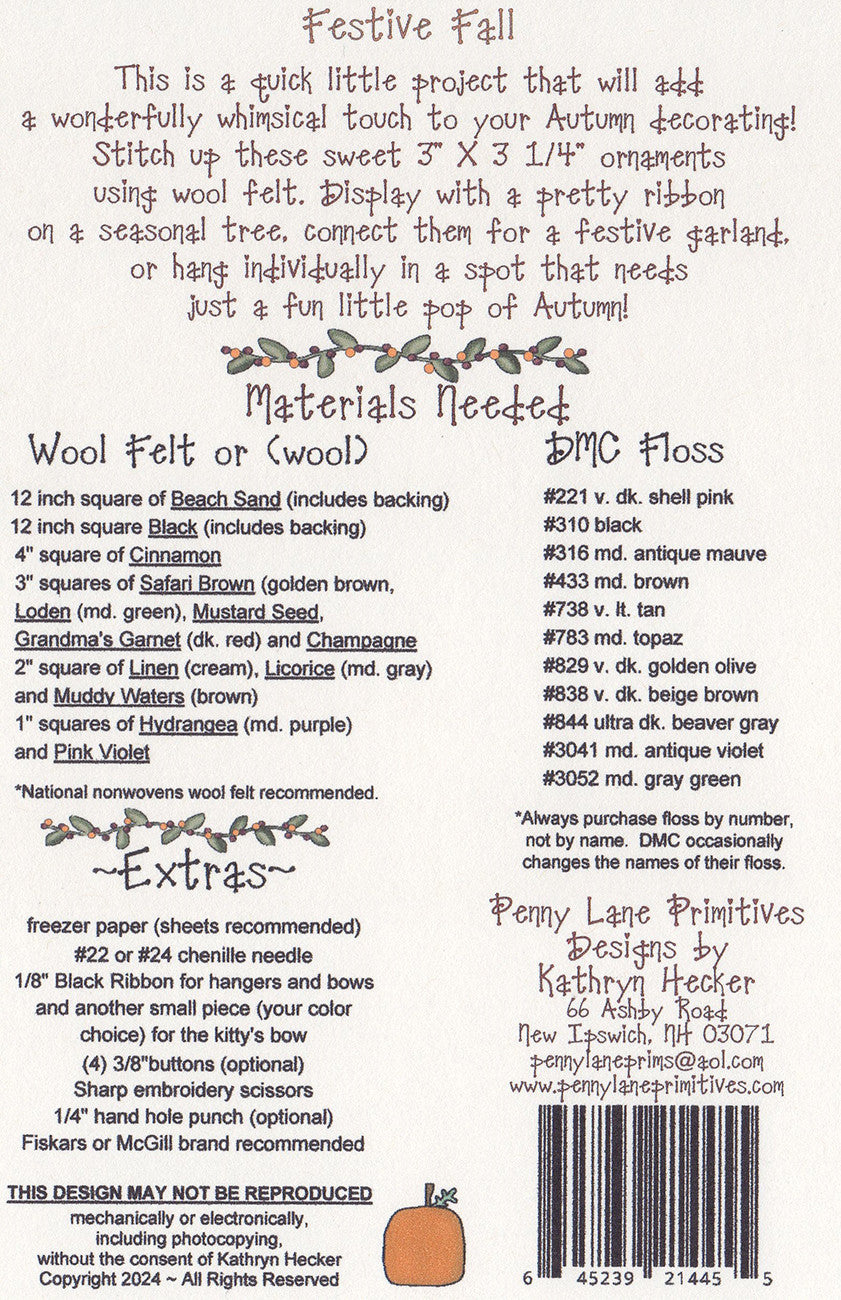 Festive Fall
This is a quick little project that will add
a wonderfully whimsical touch to your Autumn decorating!
Stitch up these sweet 3" X 3 1/4" ornaments
using wool felt. Display with a pretty ribbon
on a seasonal tree, connect them for a festive garland,
or hang individually in a spot that needs
just a fun little pop of Autumn!
Materials Needed
Wool Felt or (wool)
12 inch square of Beach Sand (includes backing)
12 inch square Black (includes backing)
4" square of Cinnamon
3" squares of Safari Brown (golden brown,
Loden (md. green), Mustard Seed,
Grandma's Garnet (dk. red) and Champagne
2" square of Linen (cream), Licorice (md. gray)
and Muddy Waters (brown)
1" squares of Hydrangea (md. purple)
and Pink Violet
*National nonwovens wool felt recommended.
~Extras~
freezer paper (sheets recommended)
#22 or #24 chenille needle
1/8" Black Ribbon for hangers and bows
and another small piece (your color
choice) for the kitty's bow
(4) 3/8"buttons (optional)
Sharp embroidery scissors
1/4" hand hole punch (optional)
Fiskars or McGill brand recommended
THIS DESIGN MAY NOT BE REPRODUCED
mechanically or electronically,
including photocopying,
without the consent of Kathryn Hecker
Copyright 2024 ~ All Rights Reserved
DMC Floss
#221 v. dk. shell pink
#310 black
#316 md. antique mauve
#433 md. brown
#738 v. lt. tan
#783 md. topaz
#829 v. dk. golden olive
#838 v. dk. beige brown
#844 ultra dk. beaver gray
#3041 md. antique violet
#3052 md. gray green
*Always purchase floss by number,
not by name. DMC occasionally
changes the names of their floss.
Penny Lane Primitives
Designs by
Kathryn Hecker
66 Ashby Road
New Ipswich, NH 03071
pennylaneprims@aol.com
www.pennylaneprimitives.com
6 45239 21445 5